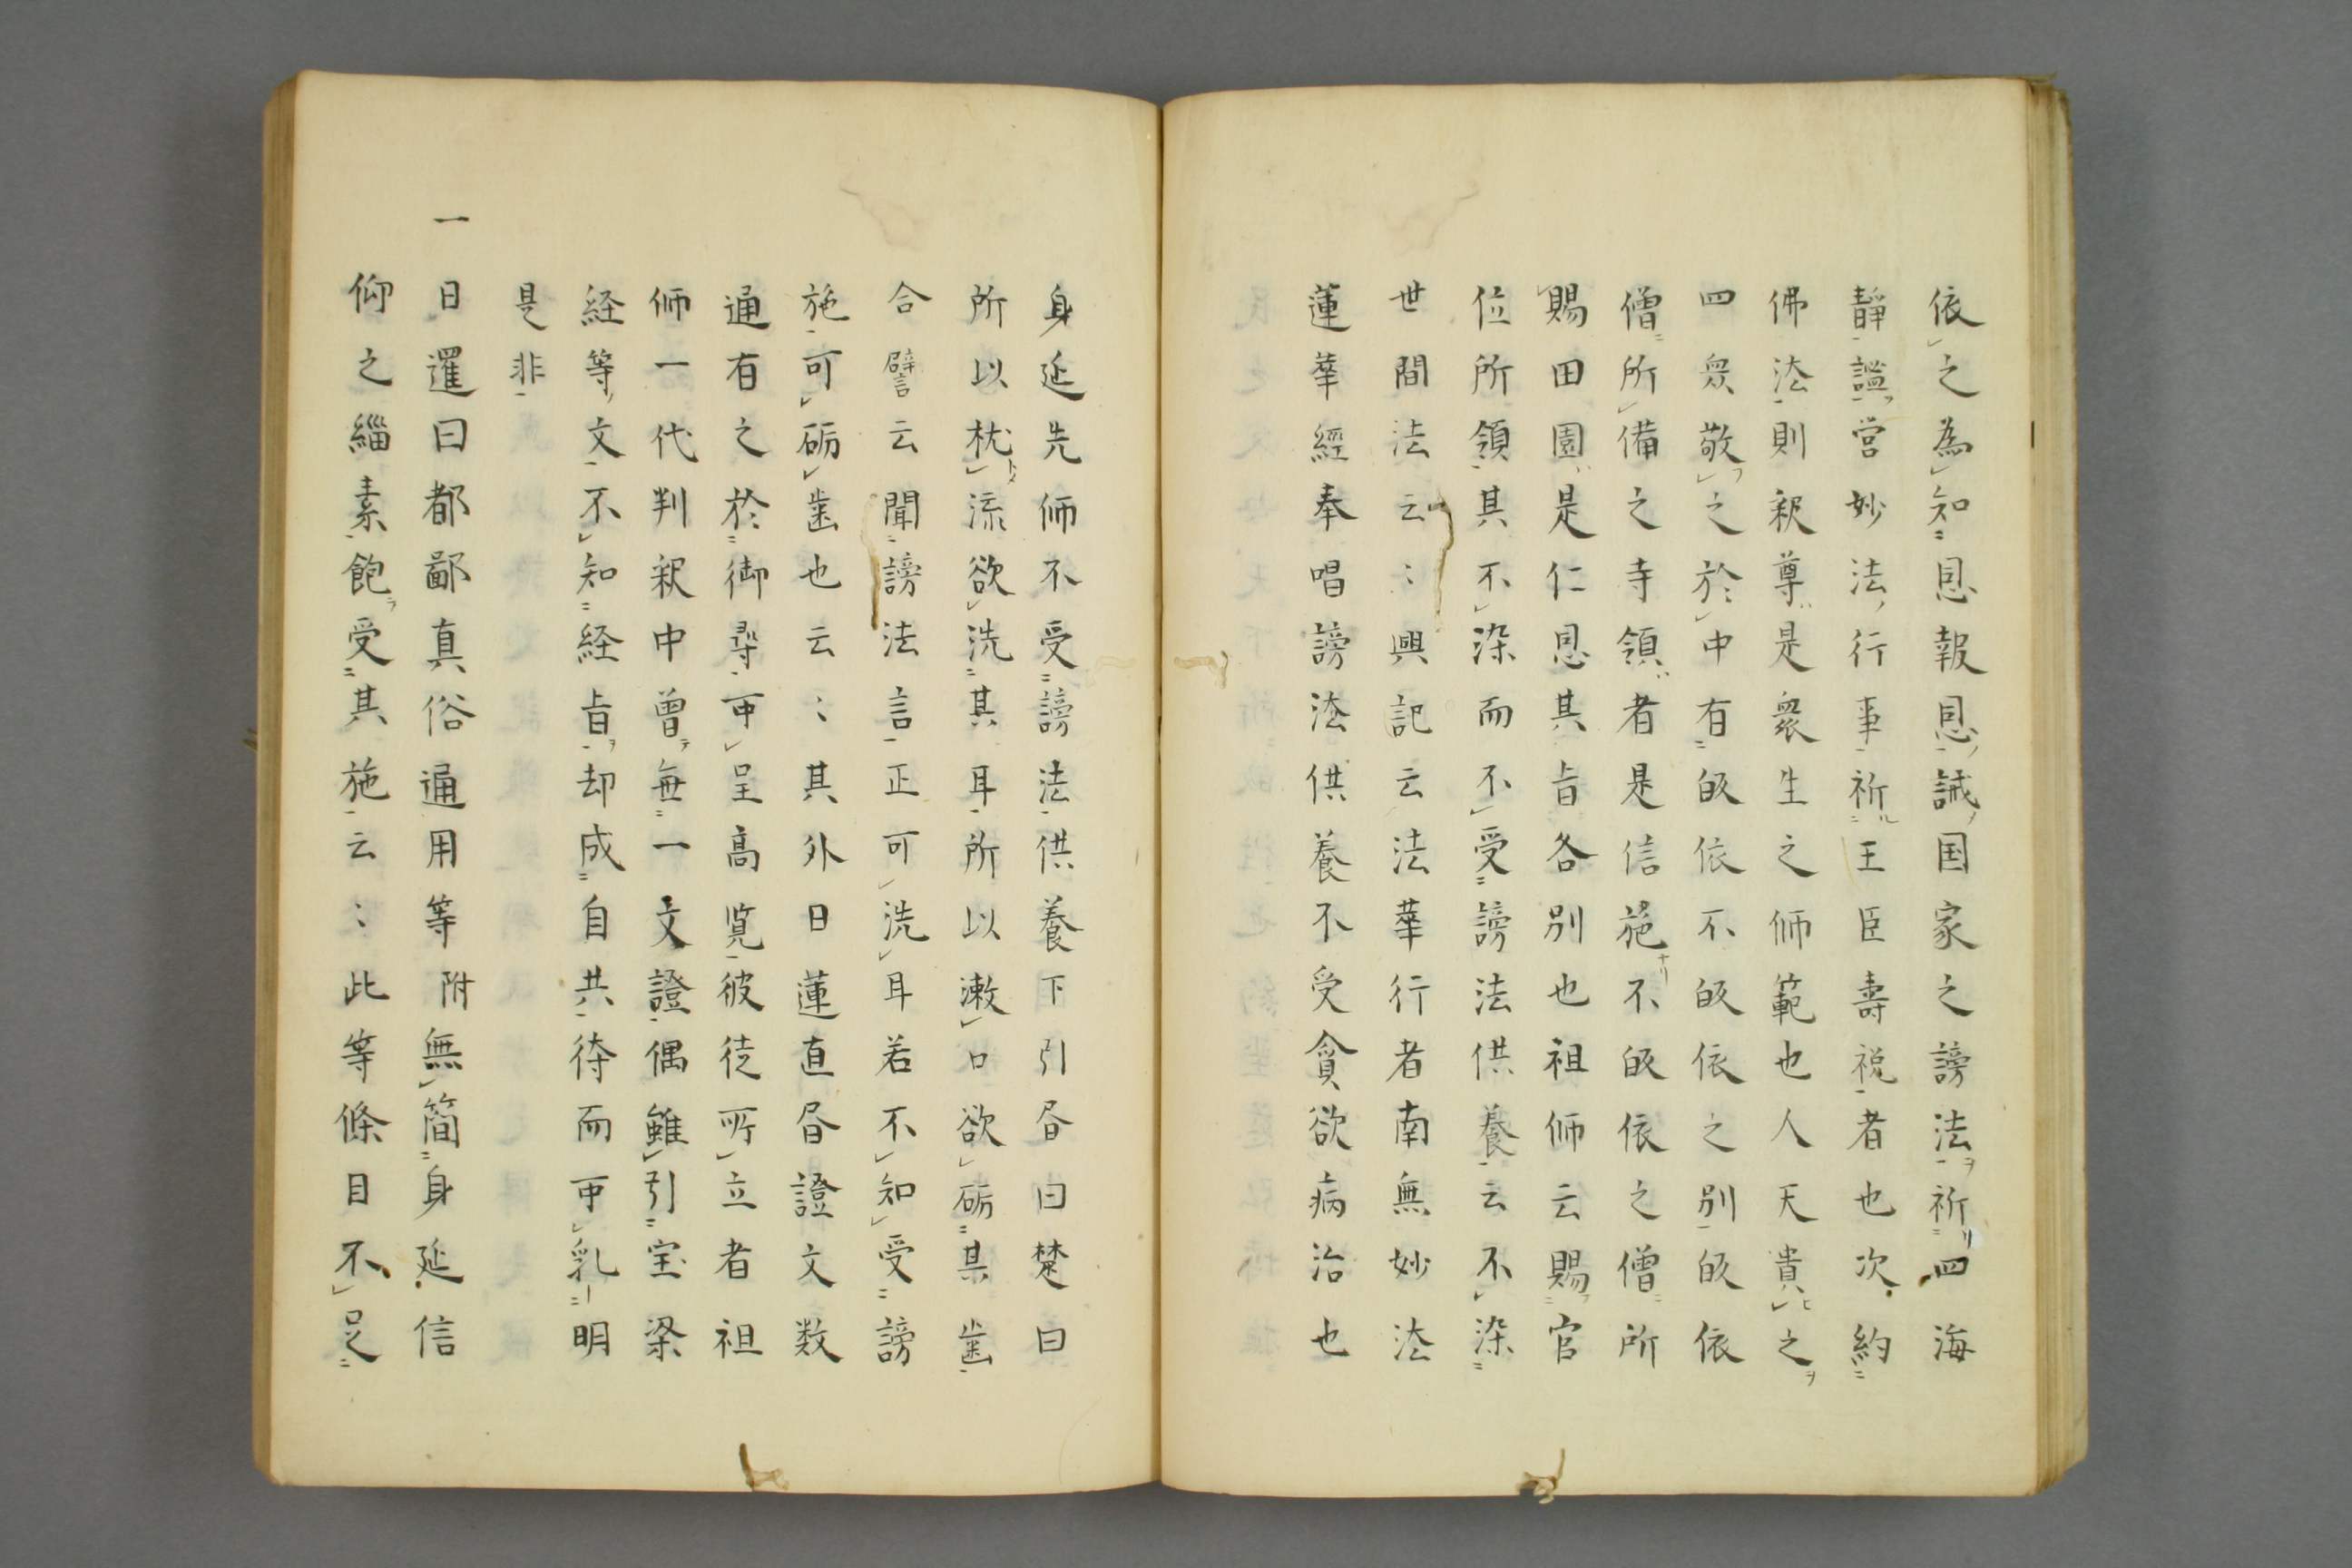 依之為知恩報恩誡国家之謗法祈四海
靜謐営妙法行事祈王臣壽祝者也次約
佛法則釈尊是衆生之師範也人天貴之
四衆敬之於中有皈依不皈依之別皈依
僧所備之寺領者是信施不皈依之僧所
賜田園是仁恩其旨各別也祖師云賜官
位所領其不染而不受謗法供養云不染
世間法云〻興記云法華行者南無妙法
蓮華經奉唱謗法供養不受貪欲病治也
身延先師不受謗法供養下引昏曰楚曰
所以枕流欲洗其耳所以漱口欲砺其歯
合譬云聞謗法言正可洗耳若不知受謗
施可砺歯也云〻其外日蓮直昏證文数
通有之於御尋可呈高覧彼徒所立者祖
师一代判釈中曽無一文證偶雖引宝梁
経等文不知経旨却成自共待而可乱明
是非
一日暹曰都鄙真俗通用等附無簡身延信
仰之緇素飽受其施云〻此等條目不足